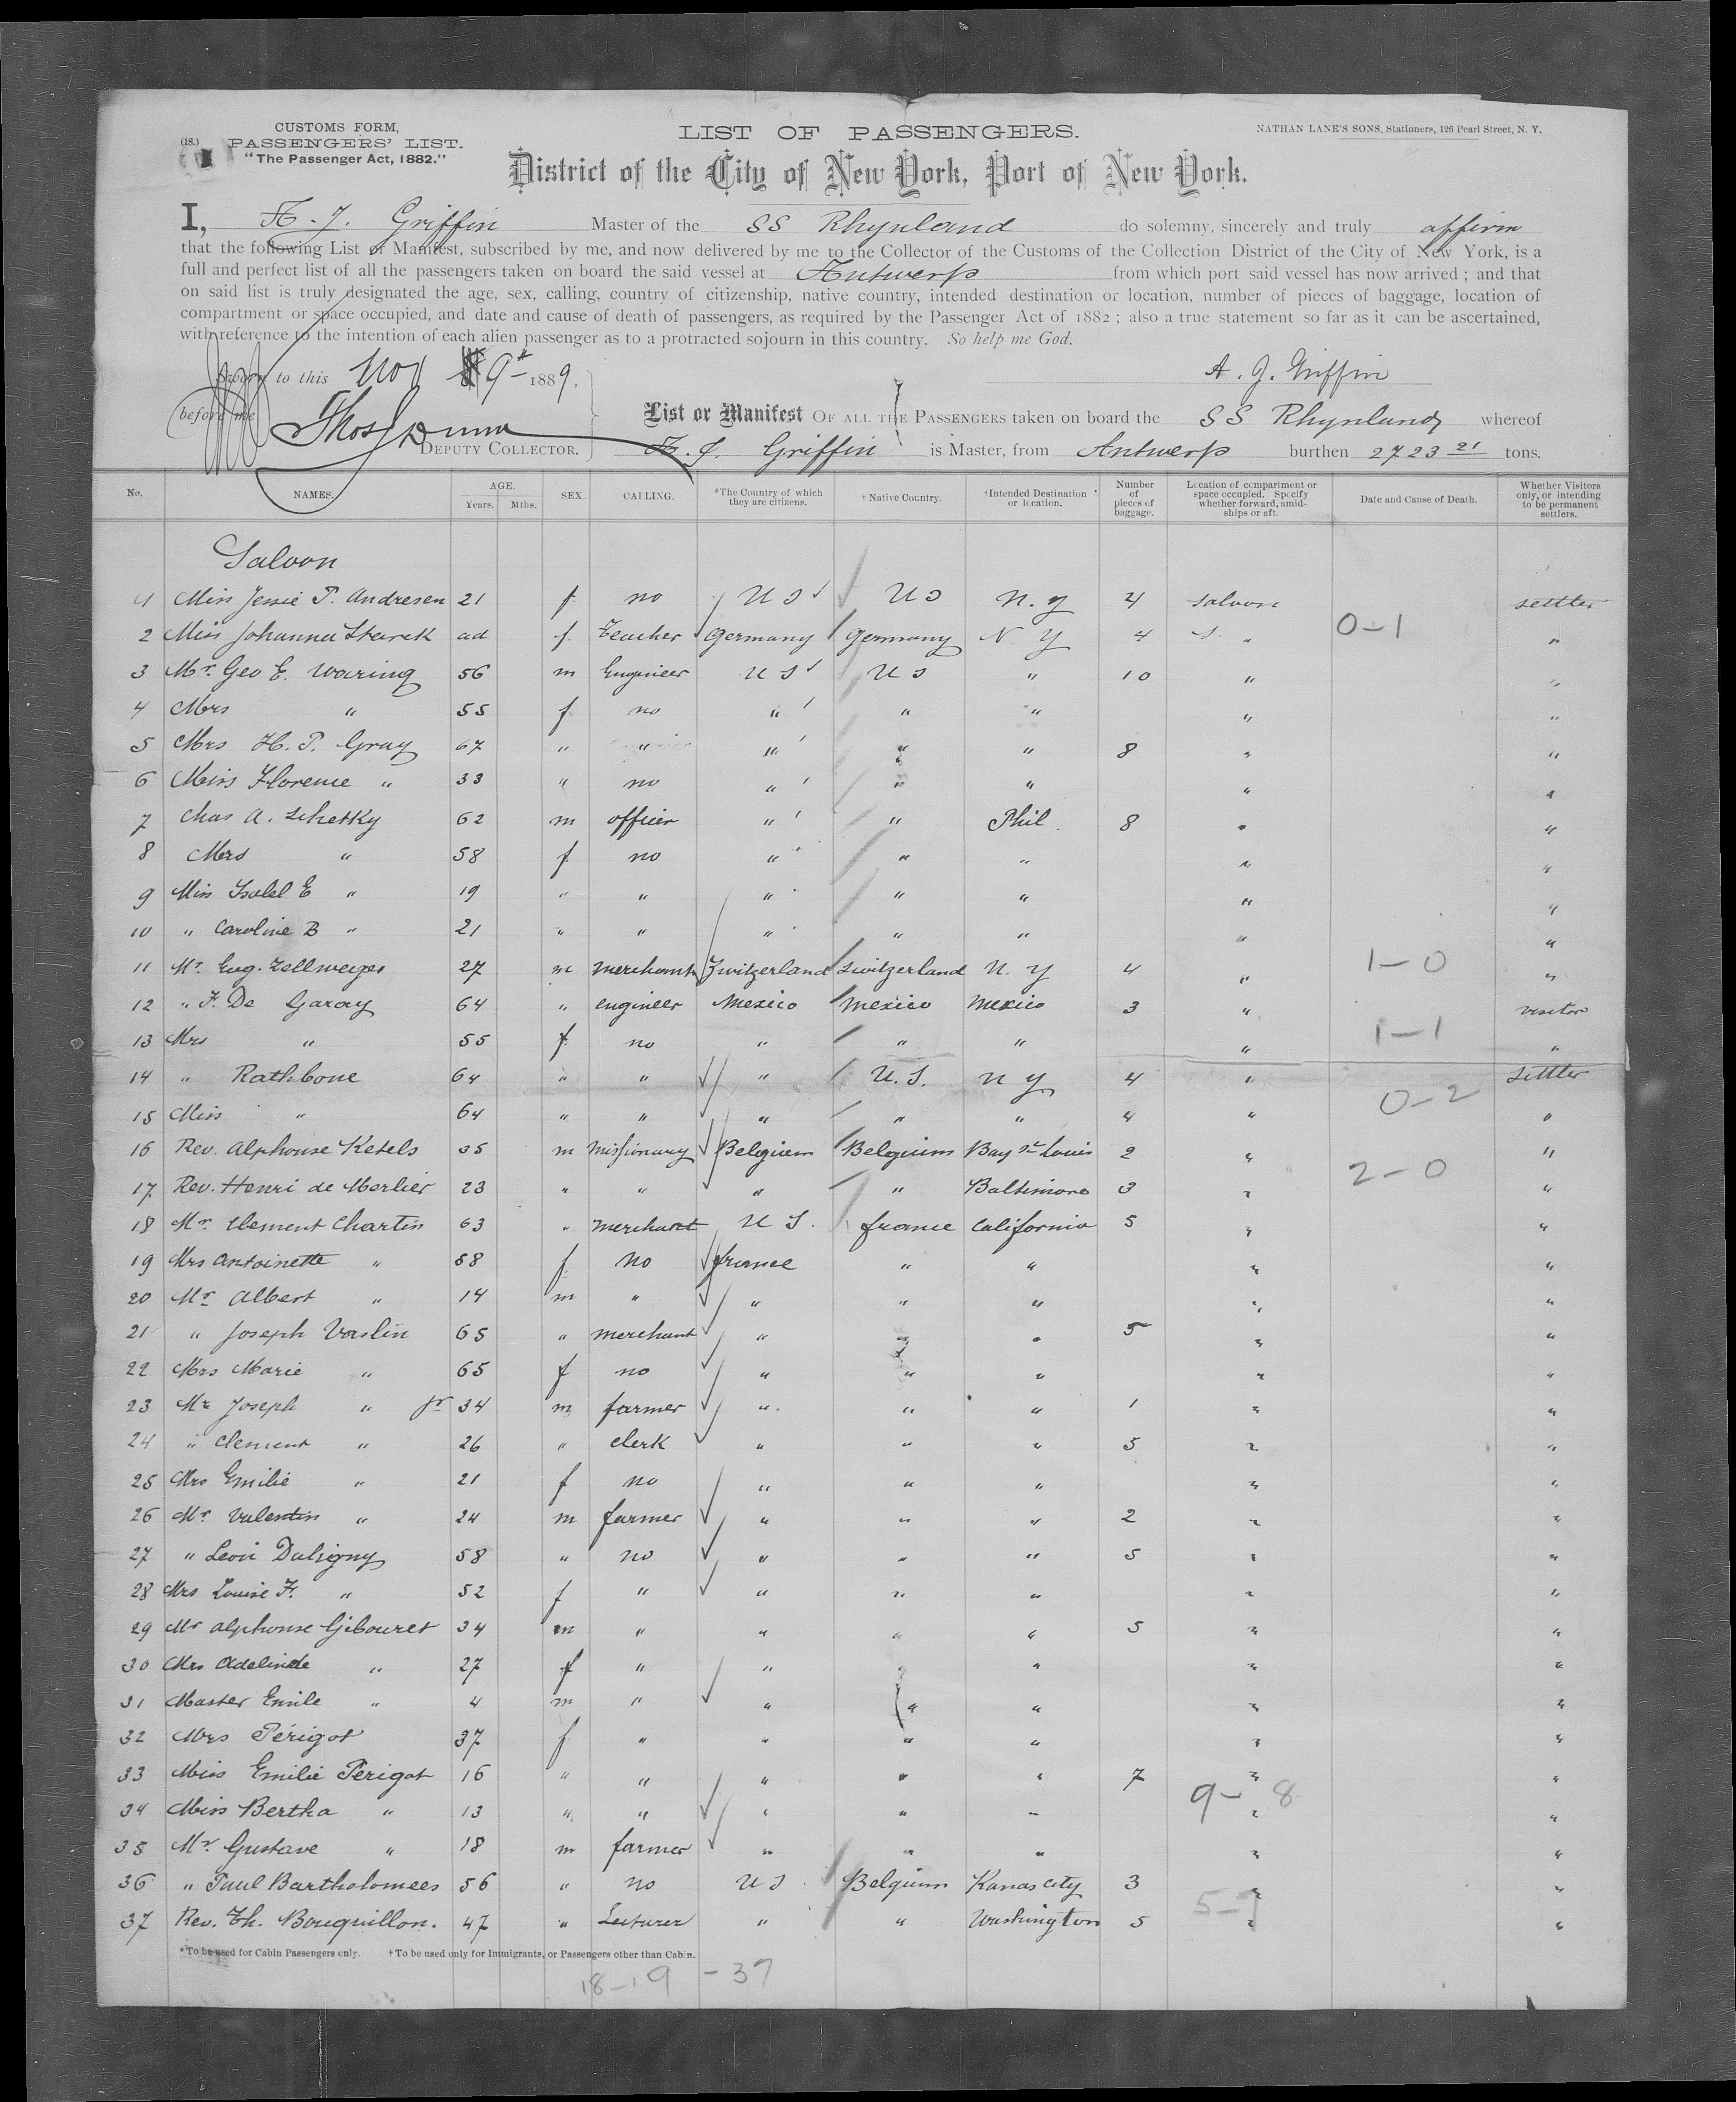 (18.)
CUSTOMS FORM,
PASSENGERS' LIST.
"The Passenger Act, 1882."
LIST OF PASSENGERS.
NATHAN LANE'S SONS, Stationers, 126 Pearl Street, N. Y.
District of the City of New York, Port of New York.
I, A. J. Griffin Master of the SS Rhynland do solemny, sincerely and truly affirm
that the following List or Manifest, subscribed by me, and now delivered by me to the Collector of the Customs of the Collection District of the City of New York, is a
full and perfect list of all the passengers taken on board the said vessel at Antwerp from which port said vessel has now arrived; and that
on said list is truly designated the age, sex, calling, country of citizenship, native country, intended destination or location, number of pieces of baggage, location of
compartment or space occupied, and date and cause of death of passengers, as required by the Passenger Act of 1882; also a true statement so far as it can be ascertained,
with reference to the intention of each alien passenger as to a protracted sojourn in this country. So help me God.
Sworn to this Nov 9th 1889,
A. J. Griffin
before me
DEPUTY COLLECTOR.
List or Manifest OF ALL THE PASSENGERS taken on board the SS Rhynland whereof
A. J. Griffin is Master, from Antwerp burthen 2723 21 tons.
No. NAMES. AGE. Years. Mths. SEX. CALLING. *The Country of which they are citizens. † Native Country. †Intended Destination or location. Number of pieces of baggage. Location of compartment or space occupied. Specify whether forward, amidships or aft. Date and Cause of Death. Whether Visitors only, or intending to be permanent settlers.
Saloon
1 Miss Jessie P. Andresen 21 f no U S U S N. Y 4 saloon settler
2 Miss Johanna Starck ad f. teacher Germany Germany N Y 4 S. " 0-1 "
3 Mr. Geo E. Waring 56 m Engineer U S U S " 10 " "
4 Mrs " 55 f no " " " " "
5 Mrs H. P. Gray 67 " " " " " 8 " "
6 Miss Florence " 33 " no " " " " "
7 Chas A. Schetky 62 m officer " " Phil. 8 " "
8 Mrs " 58 f no " " " " "
9 Miss Isabel E " 19 " " " " " " "
10 " Caroline B " 21 " " " " " " "
11 Mr. Eug. Zellweger 27 m merchant Zwitzerland Switzerland N. Y 4 " 1-0 "
12 " F. De Garay 64 " engineer Mexico Mexico Mexico 3 " visitor
13 Mrs " 55 f no " " " " 1-1 "
14 " Rathbone 64 " " " U.S. N Y 4 " settler
15 Miss " 64 " " " " " 4 " 0-2 "
16 Rev. Alphonse Ketels 35 m missionary Belgium Belgium Bay St Louis 2 " "
17 Rev. Henri de Merlier 23 " " " " Baltimore 3 " 2-0 "
18 Mr. Clement Chartin 63 " merchant U S. france California 5 " "
19 Mrs Antoinette " 58 f. no france " " " "
20 Mr Albert " 14 m " " " " " "
21 " Joseph Vaslin 65 " merchant " " " 5 " "
22 Mrs Marie " 65 f no " " " " "
23 Mr Joseph " jr 34 m farmer " " " 1 " "
24 " Clement " 26 " clerk " " " 5 " "
25 Mrs Emilie " 21 f no " " " " "
26 Mr Valentin " 24 m farmer " " " 2 " "
27 " Leon Duligny 58 " no " " " 5 " "
28 Mrs Louise F. " 52 f " " " " " "
29 Mr Alphonse Gibouret 34 m " " " " 5 " "
30 Mrs Adelinde " 27 f " " " " " "
31 Master Emile " 4 m " " " " " "
32 Mrs Périgot 37 f " " " " " "
33 Miss Emilie Périgot 16 " " " " " 7 " "
34 Miss Bertha " 13 " " " " " 9-8 " "
35 Mr Gustave " 18 m farmer " " " " "
36 " Paul Bartholomees 56 " no U S Belgium Kanas city 3 " "
37 Rev. Th. Bouquillon. 47 " Lecturer " " Washington 5 " "
*To be used for Cabin Passengers only. †To be used only for Immigrants, or Passengers other than Cabin.
18-19 - 37